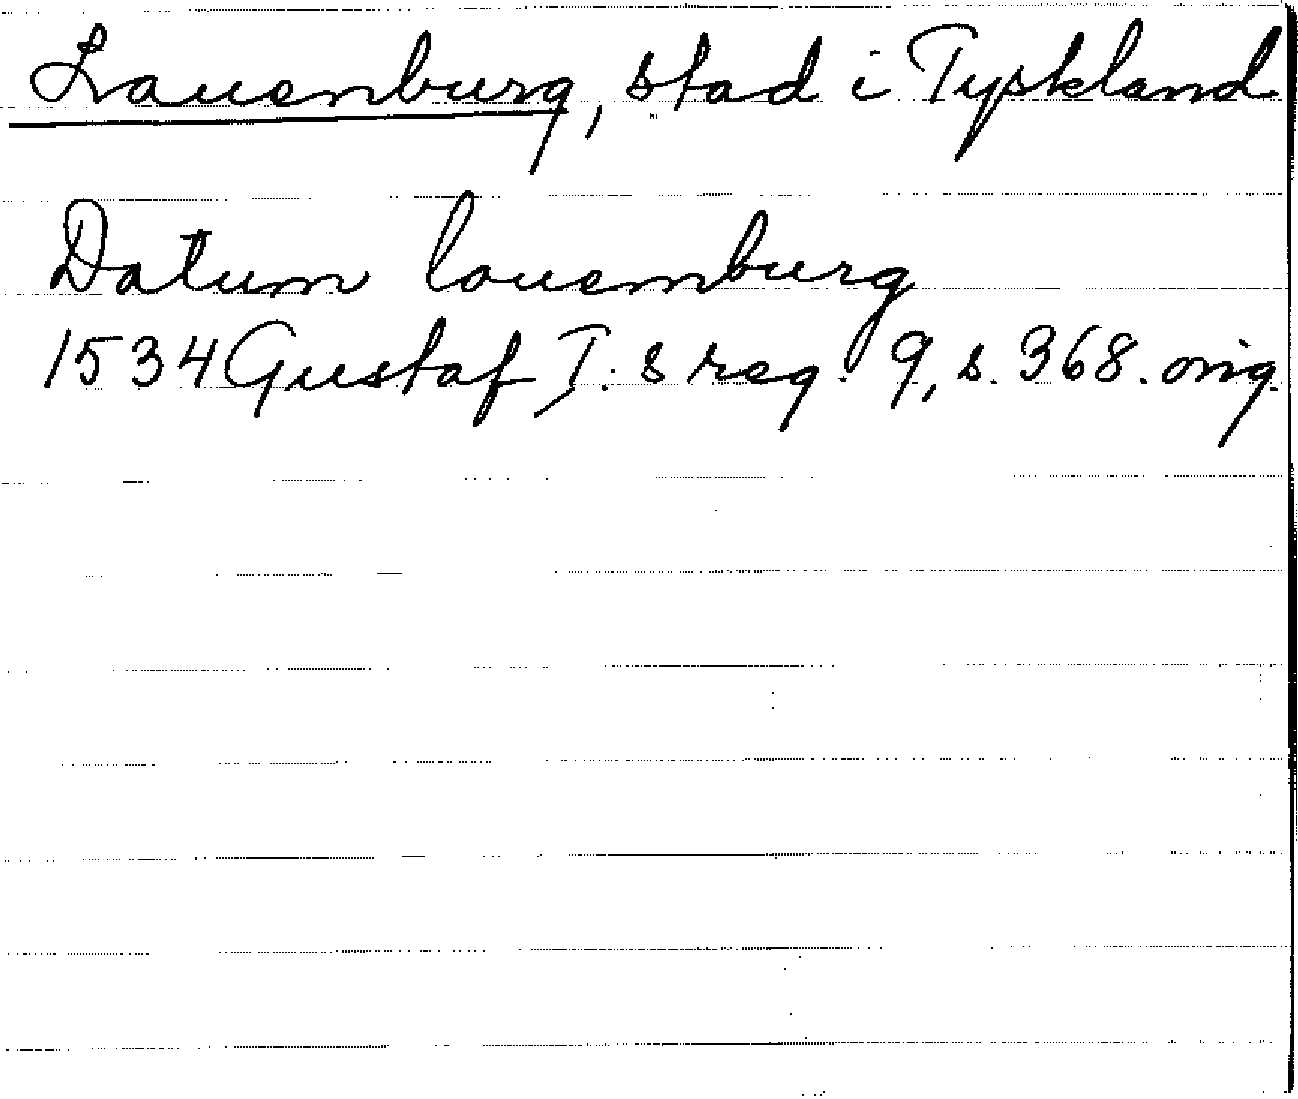 Lauenburg, stad i Tyskland
Datum louemburg
1534 Gustaf I:s reg. 9, s. 368. orig.